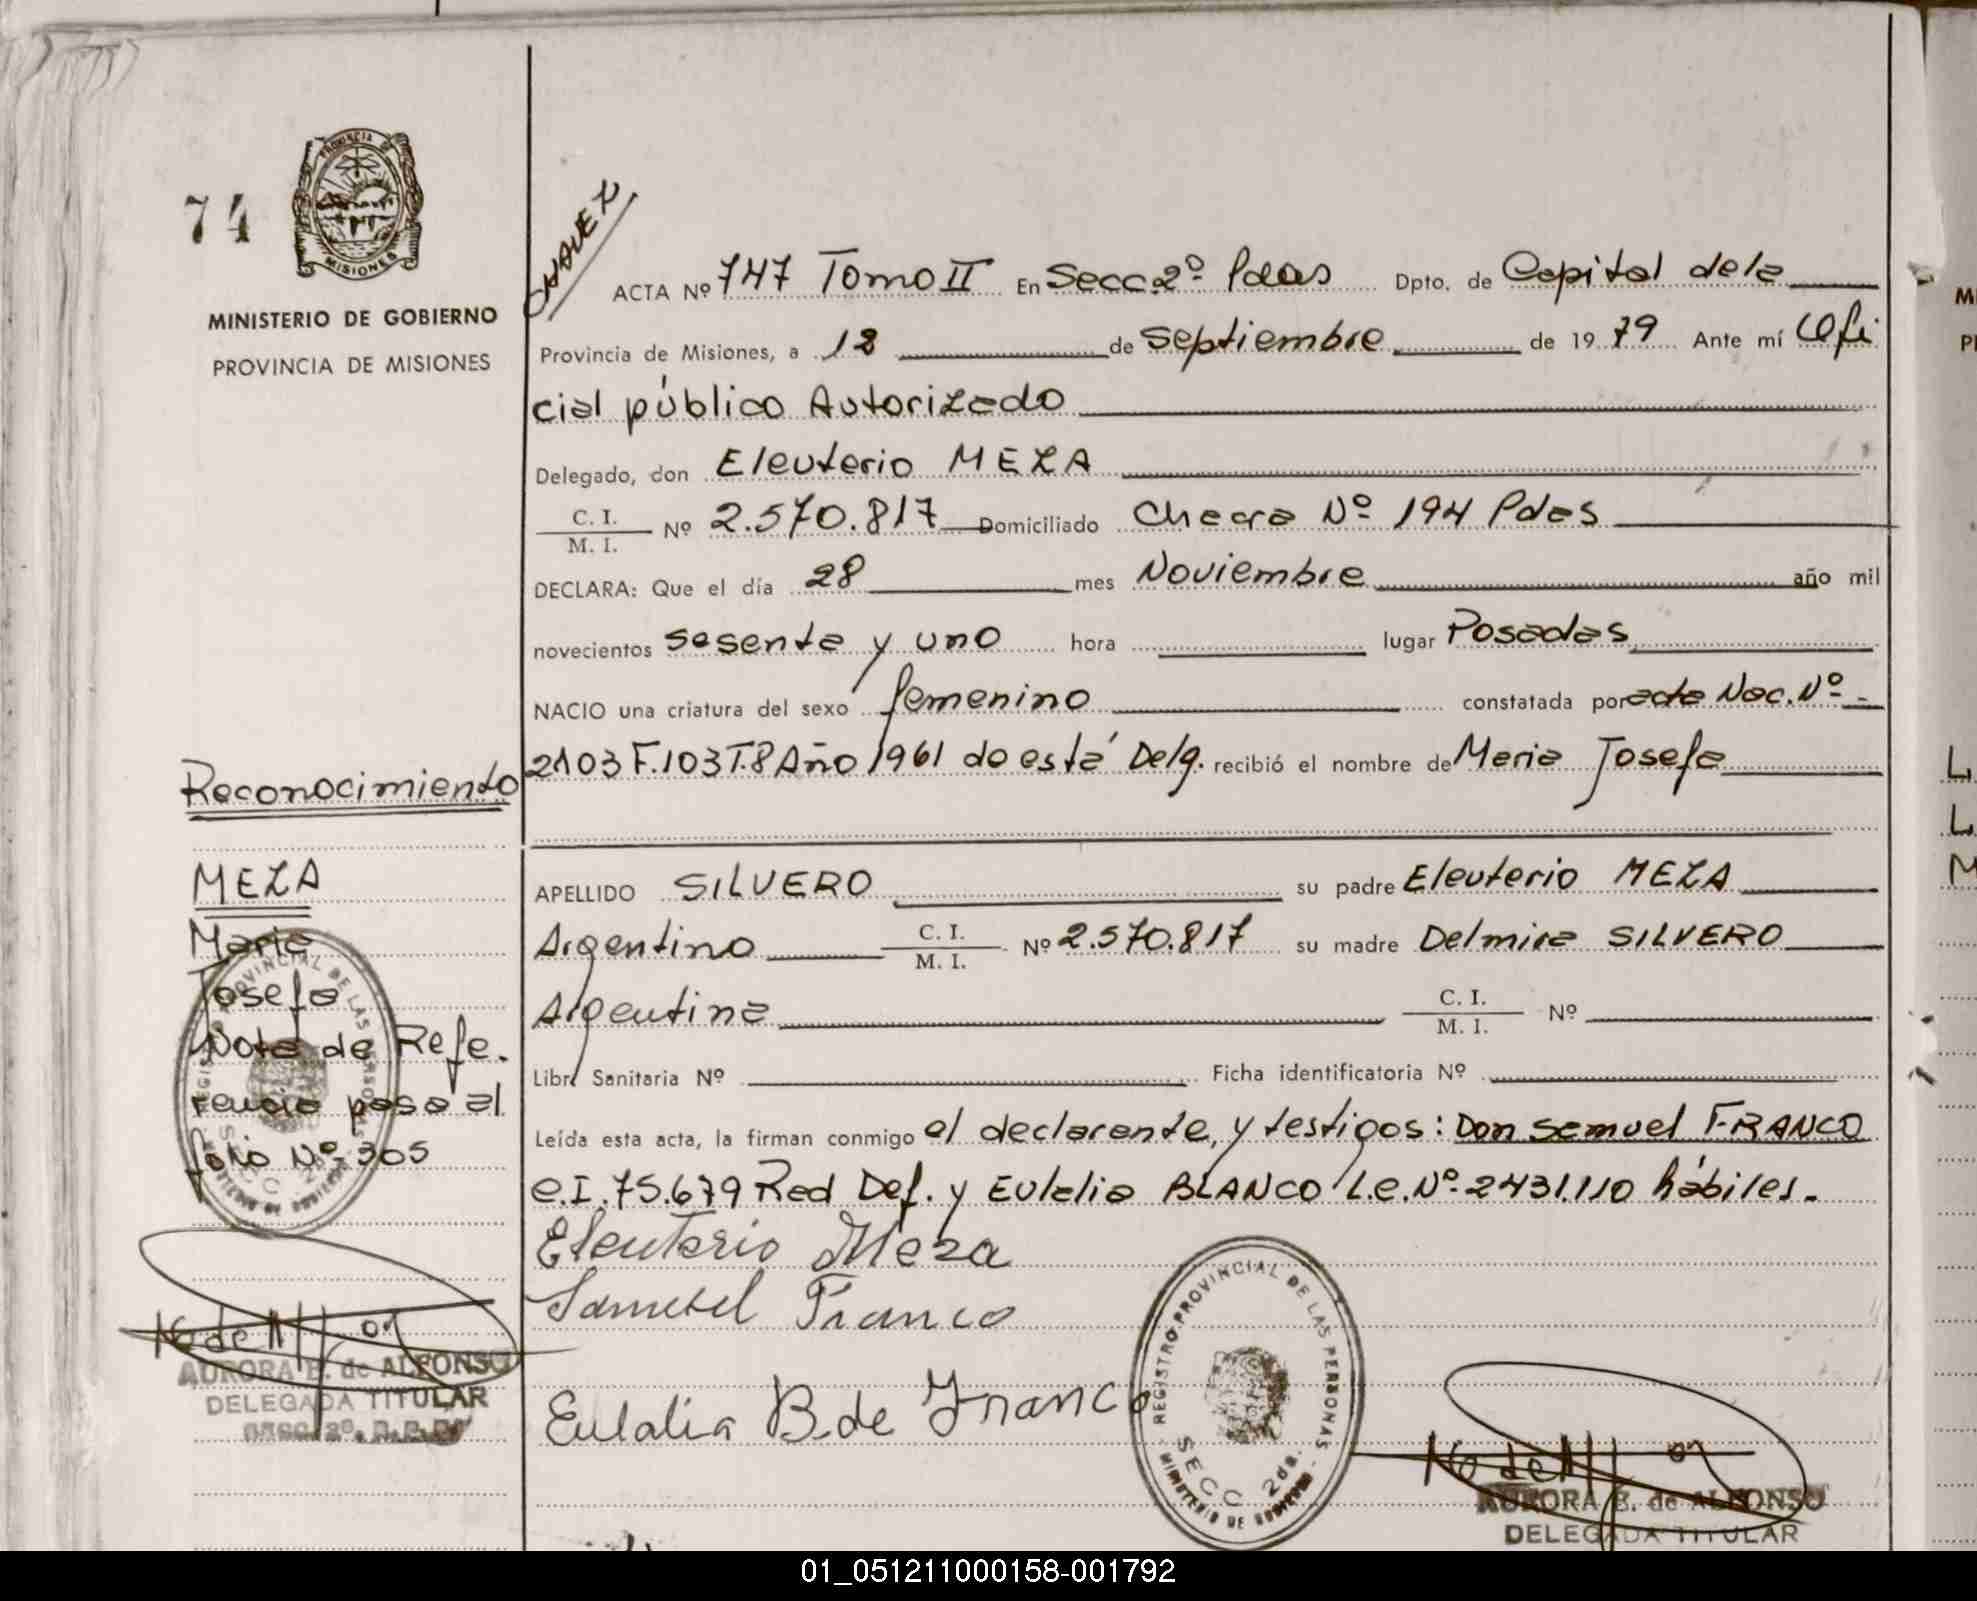 74
PROVINCIA DE
MISIONES
MINISTERIO DE GOBIERNO
PROVINCIA DE MISIONES
ACTA Nº 747 Tomo II En Secc. 2º Pdas Dpto. de Capital de la
Provincia de Misiones, a 12 de Septiembre de 1979 Ante mí Ofi
cial público Autorizado
Delegado, don Eleuterio MEZA
C. I.
M. I. Nº 2.570.817 Domiciliado Chacra Nº 194 Pdas
DECLARA: Que el día 28 mes Noviembre año mil
novecientos sesenta y uno hora lugar Posadas
NACIO una criatura del sexo femenino constatada por acta Nac. Nº -
2103 F.103 T.8 Año 1961 de está Delg. recibió el nombre de Maria Josefa
Reconocimiento
MEZA
Maria
Josefa
Nota de Refe.
rencia pasa al
folio Nº 305
APELLIDO SILVERO su padre Eleuterio MEZA
Argentino C. I.
M. I. Nº 2.570.817 su madre Delmira SILVERO
Argentina C. I.
M. I. Nº
Libr. Sanitaria Nº Ficha identificatoria Nº
Leída esta acta, la firman conmigo el declarante, y testigos: Don Samuel FRANCO
C.I. 75.679 Red Def. y Eulalia BLANCO L.C. Nº 2431.110 hábiles.
Eleuterio Meza
Samuel Franco
Eulalia B. de Franco
REGISTRO PROVINCIAL DE LAS PERSONAS
SECC 2da.
MINISTERIO DE GOBIERNO
AURORA B. de ALFONSO
DELEGADA TITULAR
SECC. 2º
REGISTRO PROVINCIAL DE LAS PERSONAS
SECC 2da.
MINISTERIO DE GOBIERNO
AURORA B. de ALFONSO
DELEGADA TITULAR
01_051211000158-001792